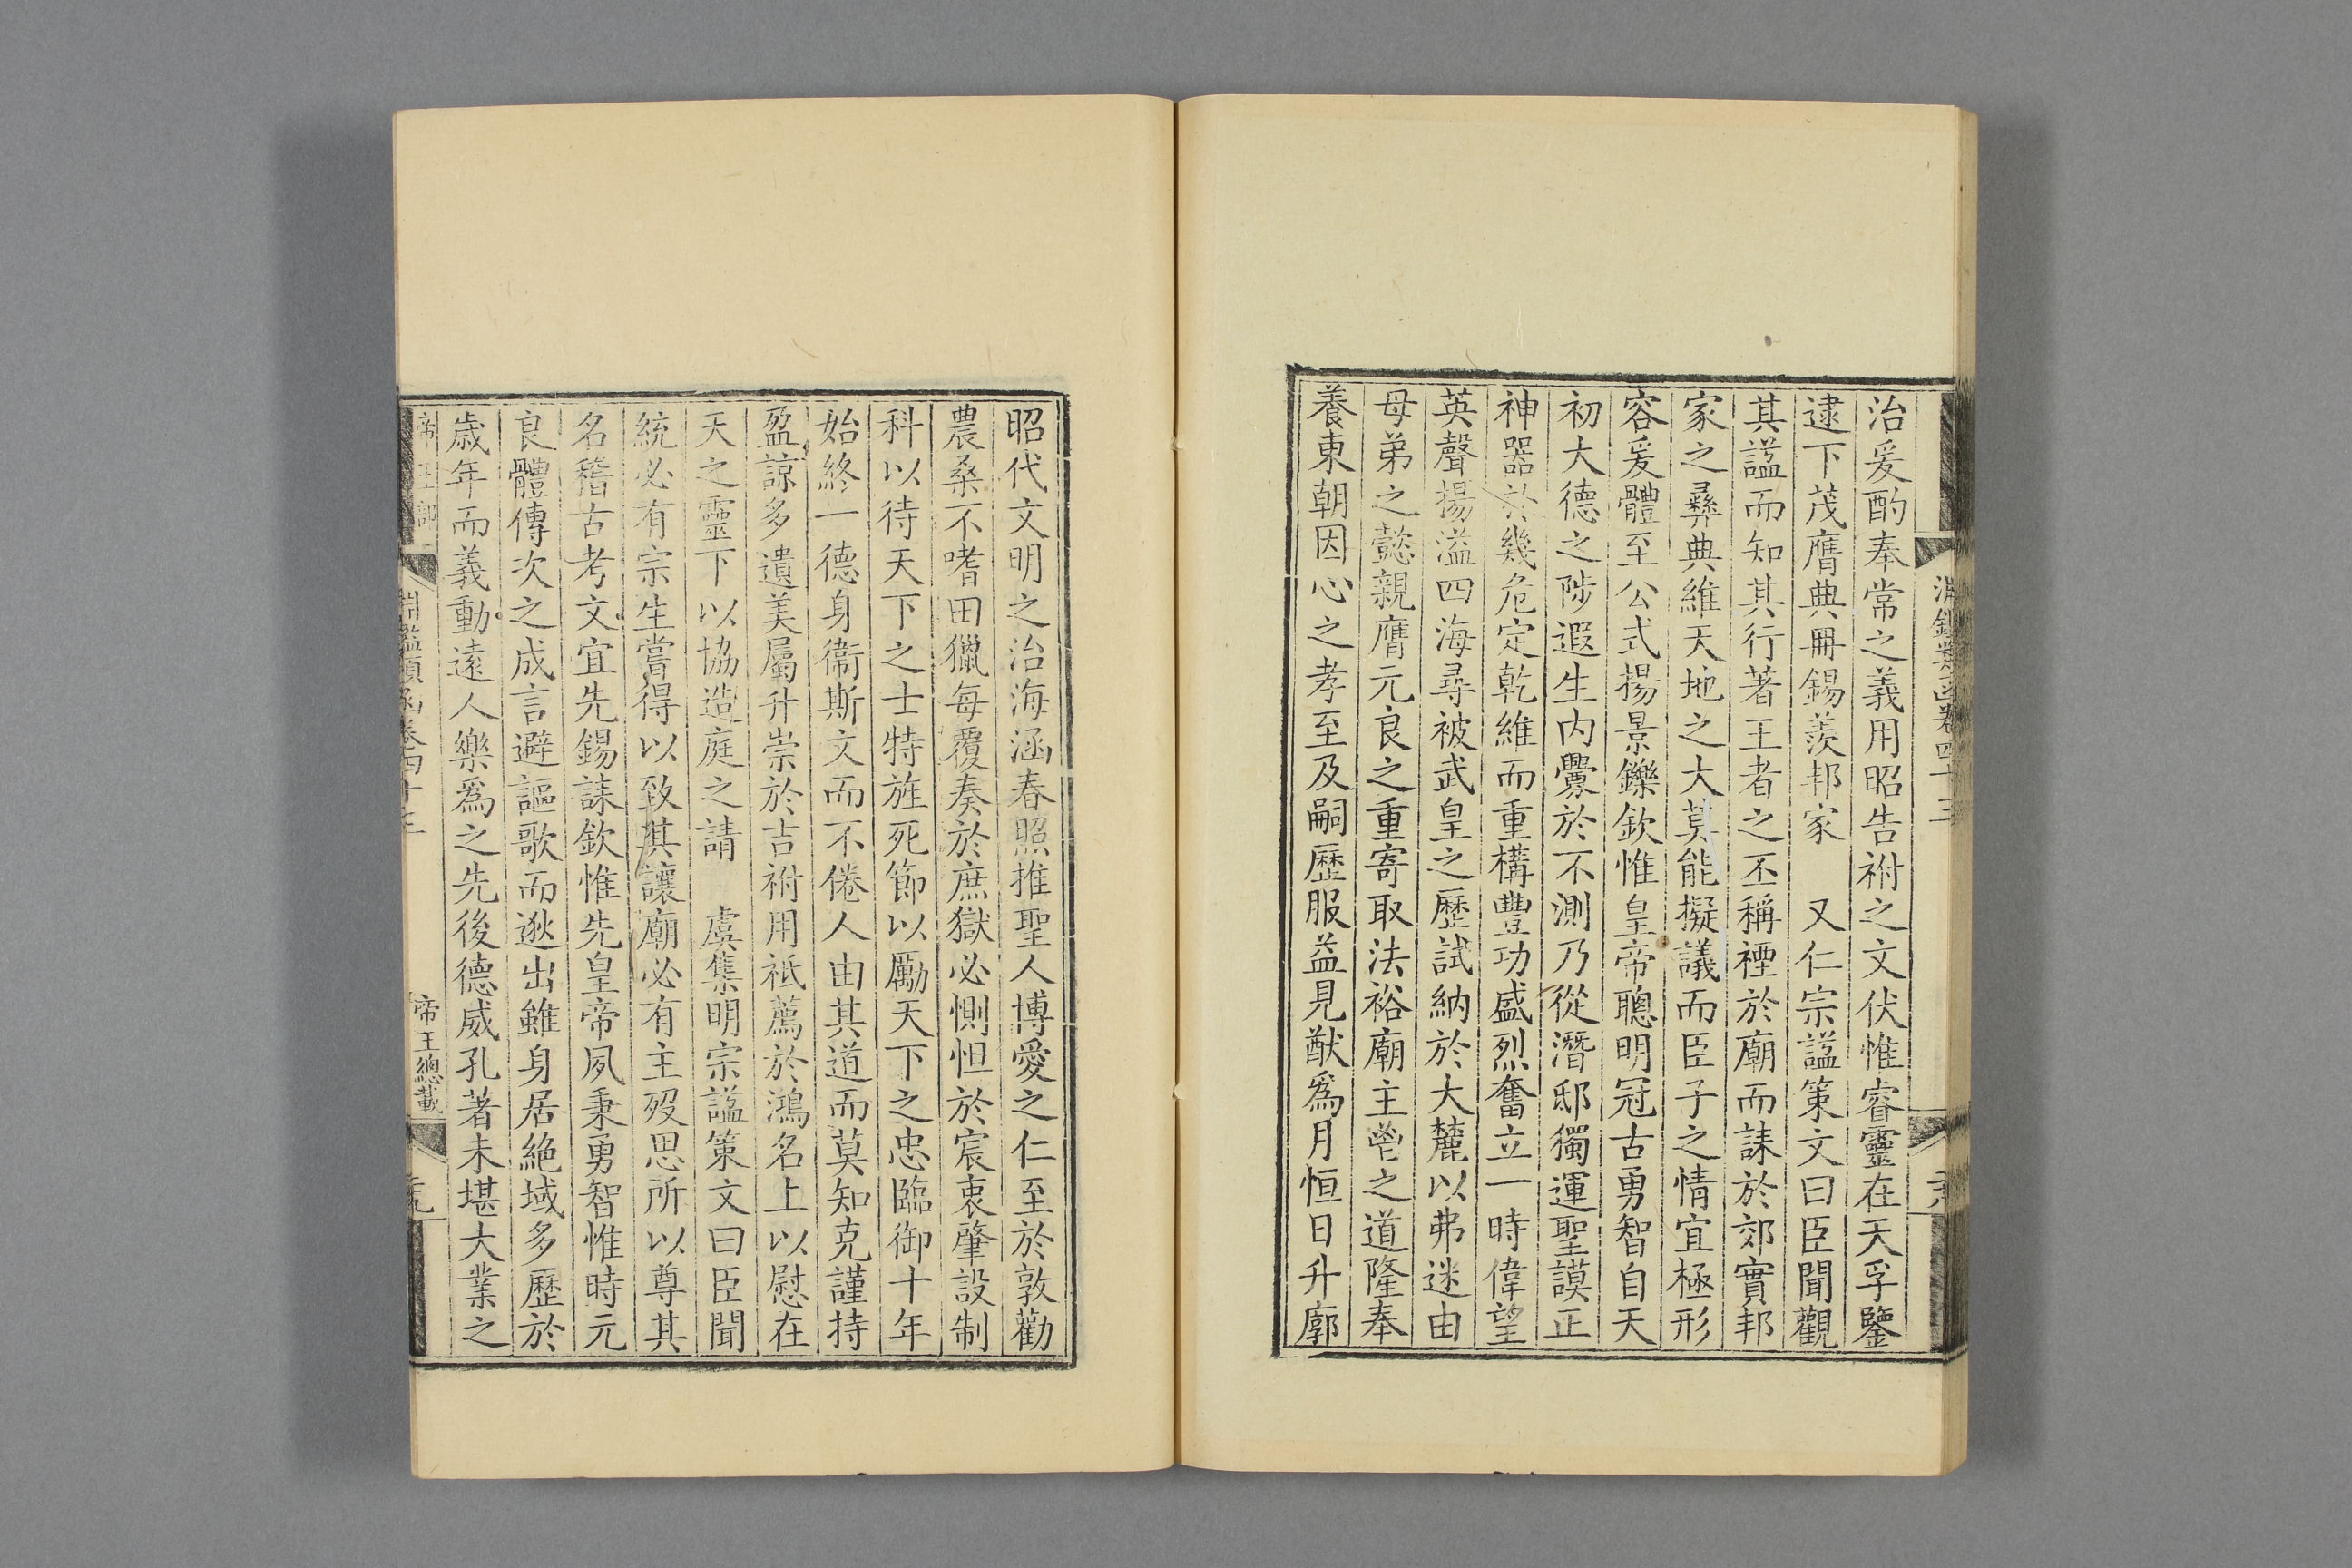 治爰酌奉常之義用昭告祔之文伏惟睿靈在天孚鑒
逮下茂膺典冊錫羨邦家　又仁宗諡策文曰臣聞觀
其諡而知其行著王者之丕稱禋於廟而誄於郊實邦
家之彞典維天地之大莫能擬議而臣子之情宜極形
容爰體至公式揚景鑠欽惟皇帝聰明冠古勇智自天
初大德之陟遐生内釁於不測乃從潛邸獨運聖謨正
神器於幾危定乾維而重構豐功盛烈奮立一時偉望
英聲揚溢四海尋被武皇之歷試納於大麓以弗迷由
母弟之懿親膺元良之重寄取法裕廟主鬯之道隆奉
養東朝因心之孝至及嗣歷服益見猷爲月恒日升廓
昭代文明之治海涵春照推聖人博愛之仁至於敦勸
農桑不嗜田獵每覆奏於庶獄必惻怛於宸衷肇設制
科以待天下之士特旌死節以勵天下之忠臨御十年
始終一德身衞斯文而不倦人由其道而莫知克謹持
盈諒多遺美屬升崇於吉祔用祗薦於鴻名上以慰在
天之靈下以協造庭之請　虞集明宗諡策文曰臣聞
統必有宗生嘗得以致其讓廟必有主歿思所以尊其
名稽古考文宜先錫誄欽惟先皇帝夙秉勇智惟時元
良體傳次之成言避謳歌而逖出雖身居絶域多歷於
歲年而義動遠人樂爲之先後德威孔著未堪大業之
帝王部
淵鑑類函卷四十三
帝王總載